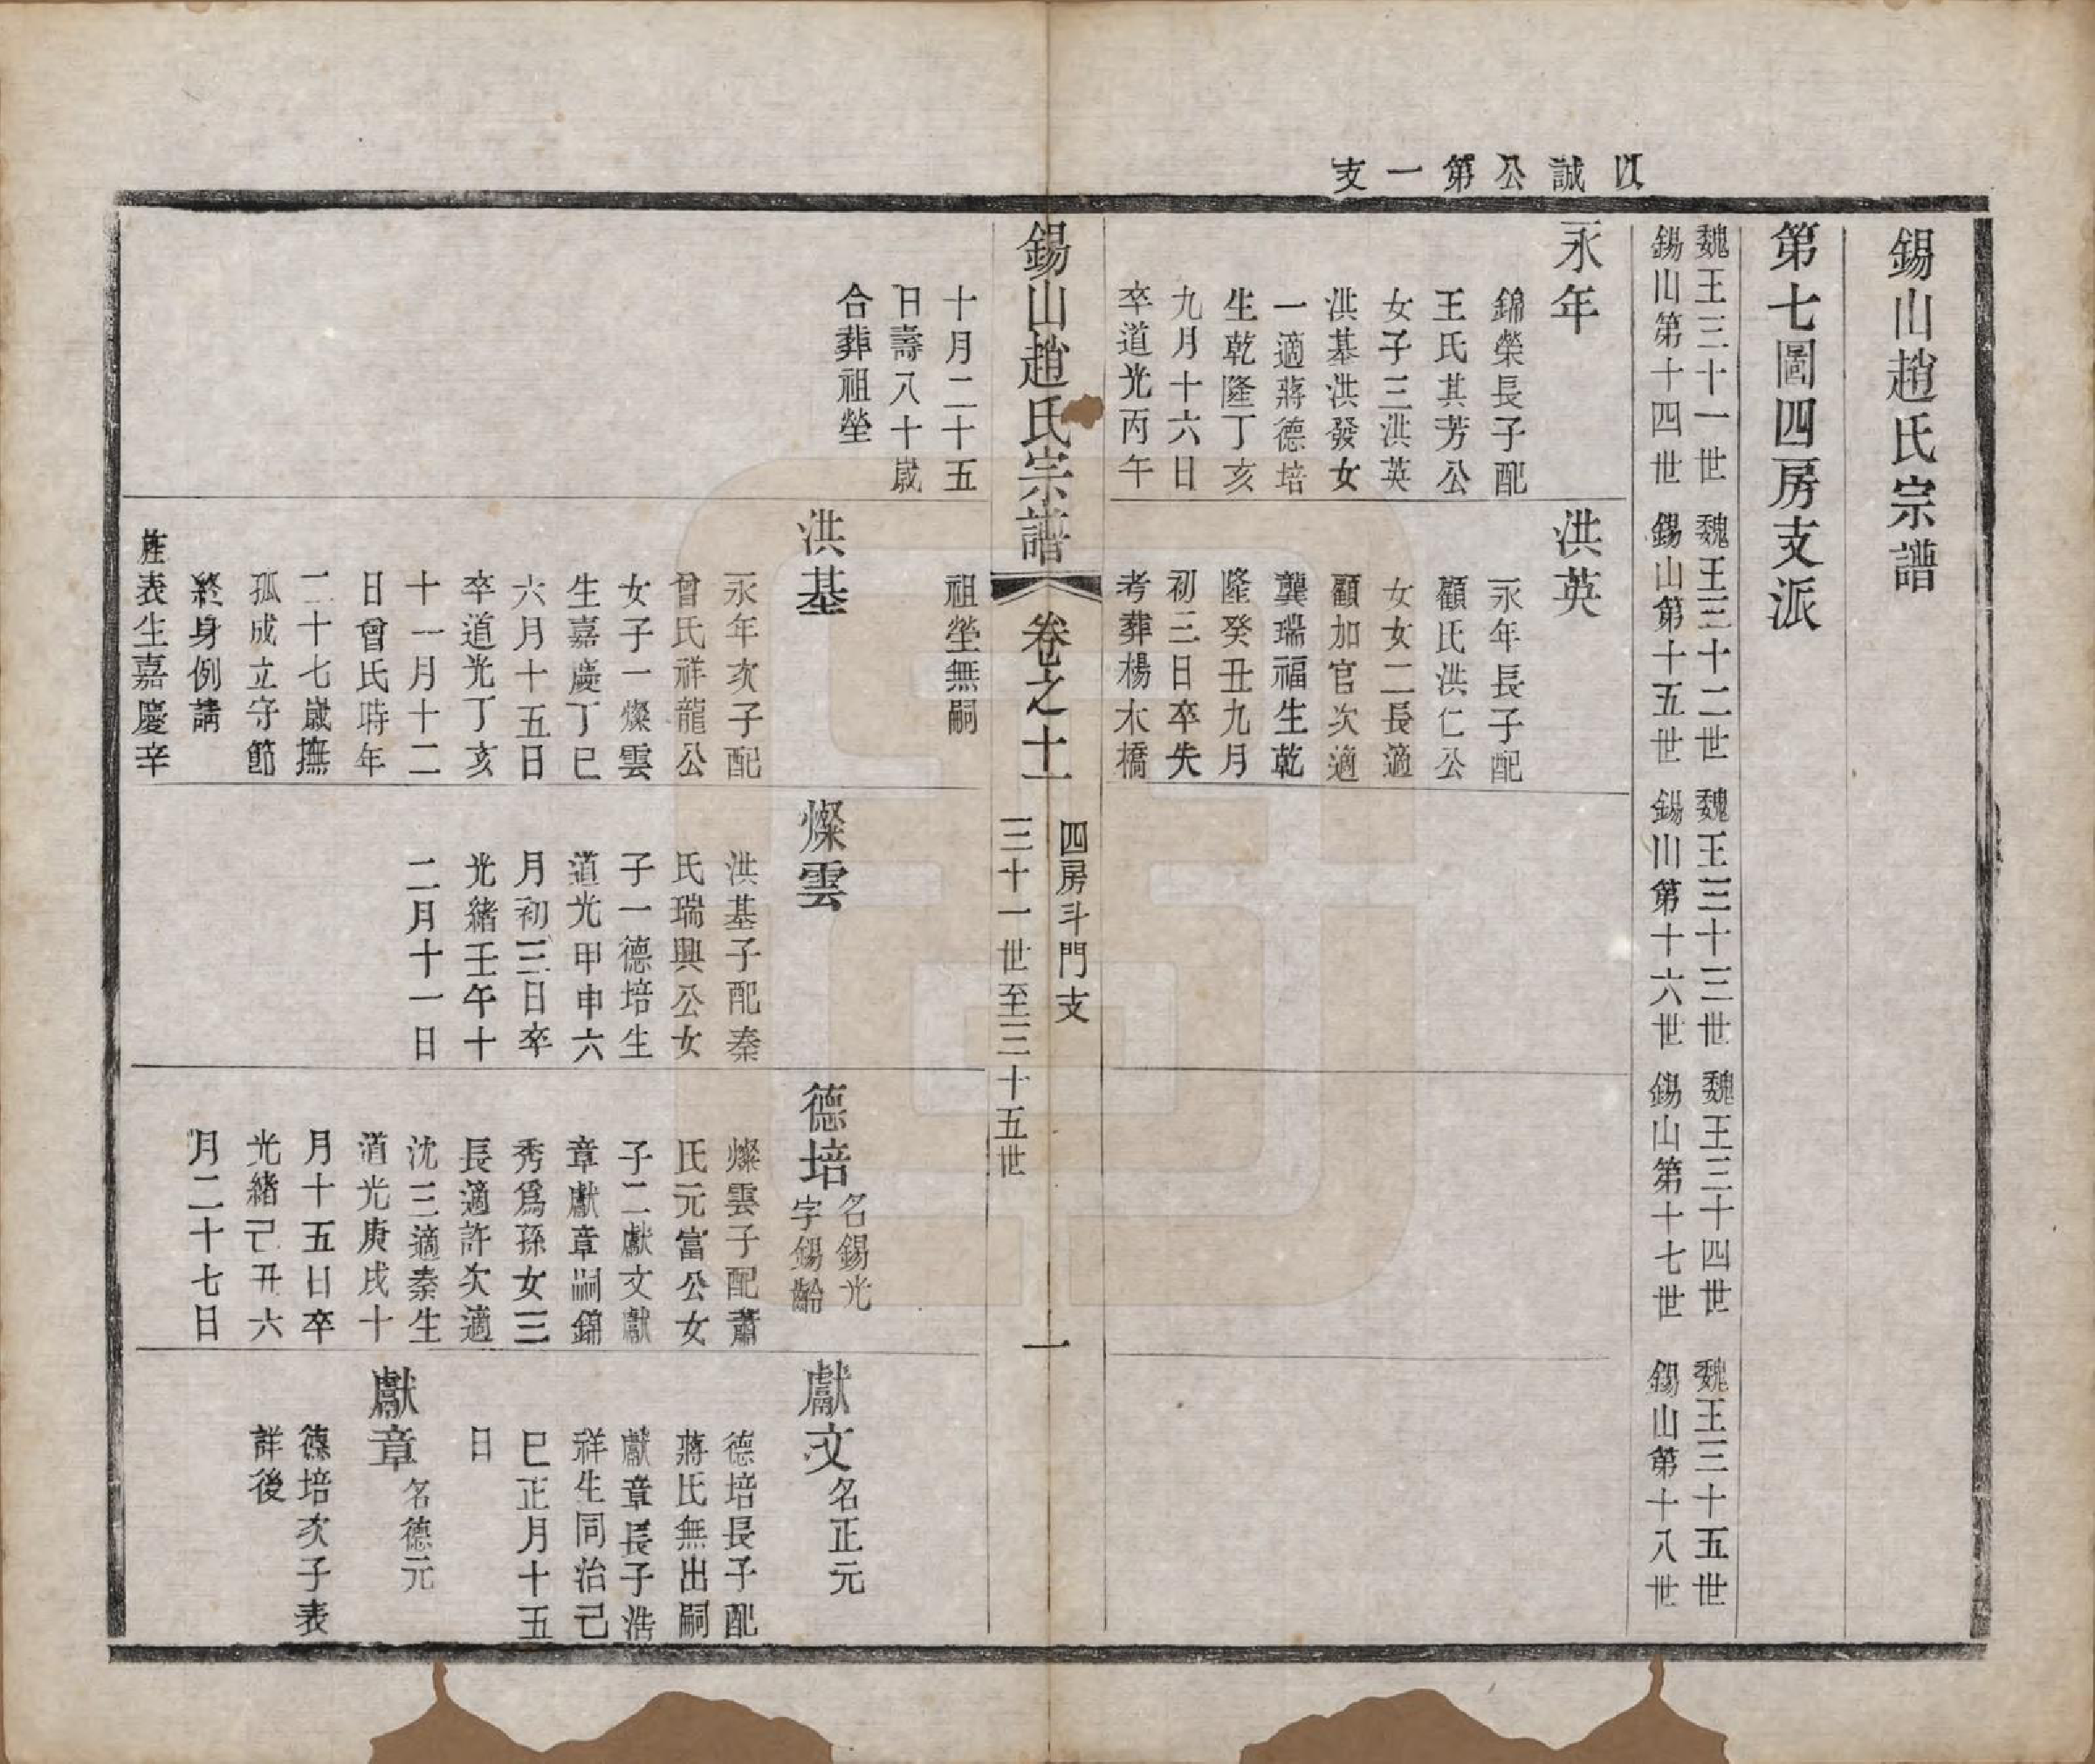 以誠公第一支
錫山趙氏宗譜
第七圖四房支派
魏王三十一世
錫山第十四世
魏王三十二世
錫山第十五世
魏王三十三世
錫山第十六世
魏王三十四世
錫山第十七世
魏王三十五世
錫山第十八世
永年
錦榮長子配
王氏其芳公
女子三洪英
洪基洪發女
一適蔣德培
生乾隆丁亥
九月十六日
卒道光丙午
洪英
永年長子配
顧氏洪仁公
女女二長適
顧加官次適
龔瑞福生乾
隆癸丑九月
初三日卒失
考葬楊木橋
錫山趙氏宗譜
卷之十一
四房斗門支
三十一世至三十五世
一
十月二十五
日壽八十歲
合葬祖塋
祖塋無嗣
洪基
永年次子配
曾氏祥龍公
女子一燦雲
生嘉慶丁巳
六月十五日
卒道光丁亥
十一月十二
日曾氏時年
二十七歲撫
孤成立守節
終身例請
旌表生嘉慶辛
燦雲
洪基子配秦
氏瑞興公女
子一德培生
道光甲申六
月初三日卒
光緒壬午十
二月十一日
德培
名錫光
字錫齡
燦雲子配蕭
氏元富公女
子二獻文獻
章獻章嗣錦
秀爲孫女三
長適許次適
沈三適秦生
道光庚戌十
月十五日卒
光緒己丑六
月二十七日
獻文
名正元
德培長子配
蔣氏無出嗣
獻章長子浩
祥生同治己
巳正月十五
日
獻章
名德元
德培次子表
詳後